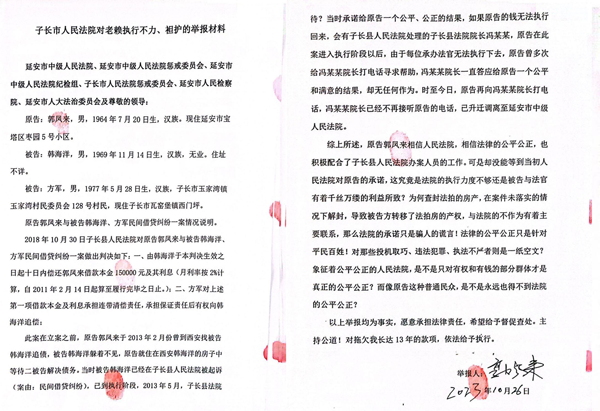 子长市人民法院对老赖执行不力、袒护的举报材料
延安市中级人民法院、延安市中级人民法院惩戒委员会、延安市
中级人民法院纪检组、子长市人民法院惩戒委员会、延安市人民检察
院、延安市人大法治委员会及尊敬的领导：
原告：郭凤来，男，1964 年 7 月 20 日生，汉族，现住延安市宝
塔区枣园 5 号小区。
被告：韩海洋，男，1969 年 11 月 14 日生，汉族，无业。住址
不详。
被告：方军，男，1977 年 5 月 28 日生，汉族，子长市玉家湾镇
玉家湾村民委员会 128 号村民，现住子长市瓦窑堡镇西门坪。
原告郭凤来与被告韩海洋、方军民间借贷纠纷一案情况说明。
2018 年 10 月 30 日子长县人民法院对原告郭凤来与被告韩海洋、
方军民间借贷纠纷一案做出判决如下：一、由韩海洋于本判决生效之
日起十日内偿还郭凤来借款本金 150000 元及其利息（月利率按 2%计
算，自 2011 年 2 月 14 日起算至履行完毕之日止。）；二、方军对上述
第一项借款本金及利息承担连带清偿责任，承担保证责任后有权向韩
海洋追偿；
此案在立案之前，原告郭凤来于 2013 年 2 月份曾到西安找被告
韩海洋追债，被告韩海洋躲着不见，原告就住在西安韩海洋的房子中
等待二被告解决债务。当时被告韩海洋已经在子长县人民法院被起诉
（案由：民间借贷纠纷），已到执行阶段，2013 年 5 月，子长县法院
待？当时承诺给原告一个公平、公正的结果，如果原告的钱无法执行
回来，会有子长县人民法院处理的子长县法院院长冯某某，原告在此
案进入执行阶段以后，由于每位承办法官无法执行下去，原告曾多次
给冯某某院长打电话寻求帮助，冯某某院长一直答应给原告一个公平
和满意的结果，却无任何作为。时至今日，原告再向冯某某院长打电
话，冯某某院长已经不再接听原告的电话，已升迁调离至延安市中级
人民法院。
综上所述，原告郭凤来相信人民法院，相信法律的公平公正，也
积极配合了子长县人民法院办案人员的工作。可是却没能等到当初人
民法院对原告的承诺，这究竟是法院的执行力度不够还是被告与法官
有着千丝万缕的利益所致？为何查封法拍的房产，在案件未落实的情
况下解封，导致被告方转移了法拍房的产权，与法院的不作为有着主
要联系，那么法院的承诺只是骗人的谎言！法律的公平公正只是针对
平民百姓！对那些投机取巧、违法犯罪、执法不严者则是一纸空文？
象征着公平公正的人民法院，是不是只对有权和有钱的部分群体才是
真正的公平公正？而像原告这种普通民众，是不是永远也得不到法院
的公平公正？
以上举报均为事实，愿意承担法律责任，希望给予督促查处。主
持公道！对拖欠我长达 13 年的款项，依法给予执行。
举报人：
2023 年 10 月 26 日